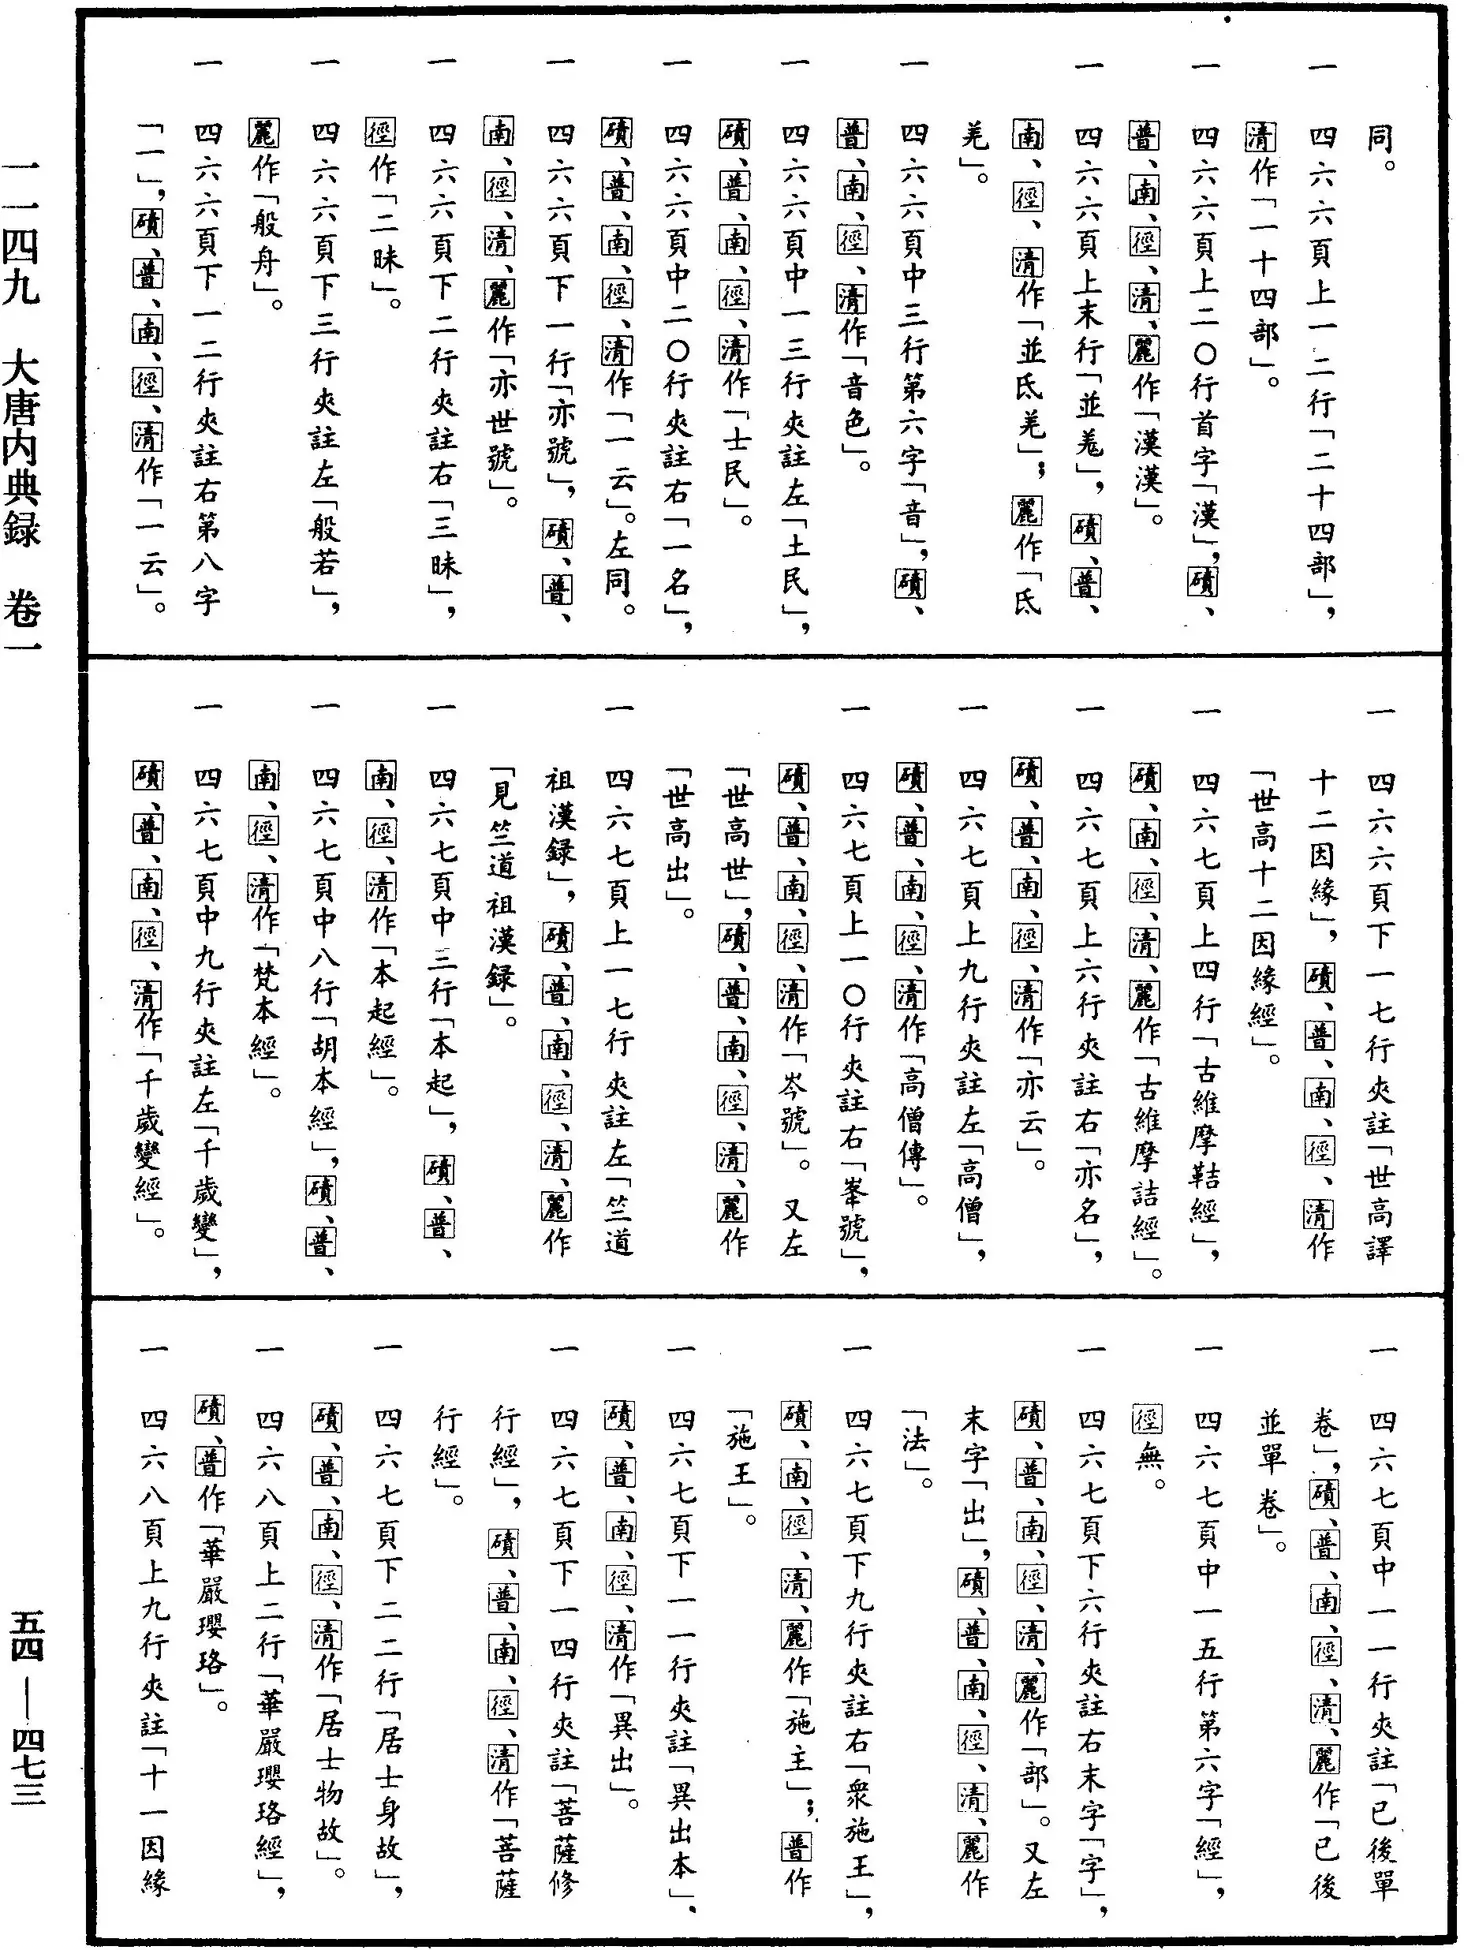 同。
一　四六六頁上一二行「二十四部」，
清作「一十四部」。
一　四六六頁上二〇行首字「漢」，磧、
普、南、徑、清、麗作「漢漢」。
一　四六六頁上末行「並羗」，磧、普、
南、徑、清作「並氐羌」；麗作「氐
羌」。
一　四六六頁中三行第六字「音」，磧、
普、南、徑、清作「音色」。
一　四六六頁中一三行夾註左「土民」，
磧、普、南、徑、清作「士民」。
一　四六六頁中二〇行夾註右「一名」，
磧、普、南、徑、清作「一云」。左同。
一　四六六頁下一行「亦號」，磧、普、
南、徑、清、麗作「亦世號」。
一　四六六頁下二行夾註右「三昧」，
徑作「二昧」。
一　四六六頁下三行夾註左「般若」，
麗作「般舟」。
一　四六六頁下一二行夾註右第八字
「一」，磧、普、南、徑、清作「一云」。
一　四六六頁下一七行夾註「世高譯
十二因緣」，磧、普、南、徑、清作
「世高十二因緣經」。
一　四六七頁上四行「古維摩鞊經」，
磧、南、徑、清、麗作「古維摩詰經」。
一　四六七頁上六行夾註右「亦名」，
磧、普、南、徑、清作「亦云」。
一　四六七頁上九行夾註左「高僧」，
磧、普、南、徑、清作「高僧傳」。
一　四六七頁上一〇行夾註右「峯號」，
磧、普、南、徑、清作「岑號」。又左
「世高世」，磧、普、南、徑、清、麗作
「世高出」。
一　四六七頁上一七行夾註左「竺道
祖漢録」，磧、普、南、徑、清、麗作
「見竺道祖漢録」。
一　四六七頁中三行「本起」，磧、普、
南、徑、清作「本起經」。
一　四六七頁中八行「胡本經」，磧、普、
南、徑、清作「梵本經」。
一　四六七頁中九行夾註左「千歲變」，
磧、普、南、徑、清作「千歲變經」。
一　四六七頁中一一行夾註「已後單
卷」，磧、普、南、徑、清、麗作「已後
並單卷」。
一　四六七頁中一五行第六字「經」，
徑無。
一　四六七頁下六行夾註右末字「字」，
磧、普、南、徑、清、麗作「部」。又左
末字「出」，磧、普、南、徑、清、麗作
「法」。
一　四六七頁下九行夾註右「衆施王」，
磧、南、徑、清、麗作「施主」；普作
「施王」。
一　四六七頁下一一行夾註「異出本」，
磧、普、南、徑、清作「異出」。
一　四六七頁下一四行夾註「菩薩修
行經」，磧、普、南、徑、清作「菩薩
行經」。
一　四六七頁下二二行「居士身故」，
磧、普、南、徑、清作「居士物故」。
一　四六八頁上二行「華嚴瓔珞經」，
磧、普作「華嚴瓔珞」。
一　四六八頁上九行夾註「十一因緣
一一四九　大唐内典録　卷一
五四—四七三